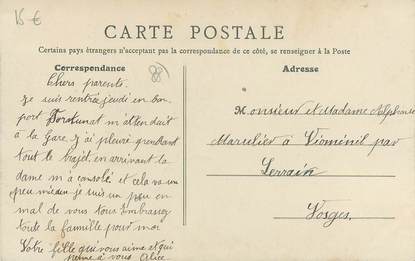 15 €
CARTE POSTALE
Certains pays étrangers n'acceptant pas la correspondance de ce côté, se renseigner à la Poste
Correspondance
Adresse
88
Chers parents.
Je suis rentrée jeudi en bon
port m'attendait
à la Gare. J'ai pleuré pendant
tout le trajet en arrivant la
dame m'a consolé et cela va un
peu mieux je suis un peu en
mal de vous tous Embrassez
toute la famille pour moi
Votre fille qui vous aime et qui
pense à vous Alice
Monsieur et Madame Alphonse
à Vioménil par
Lerrain
Vosges.